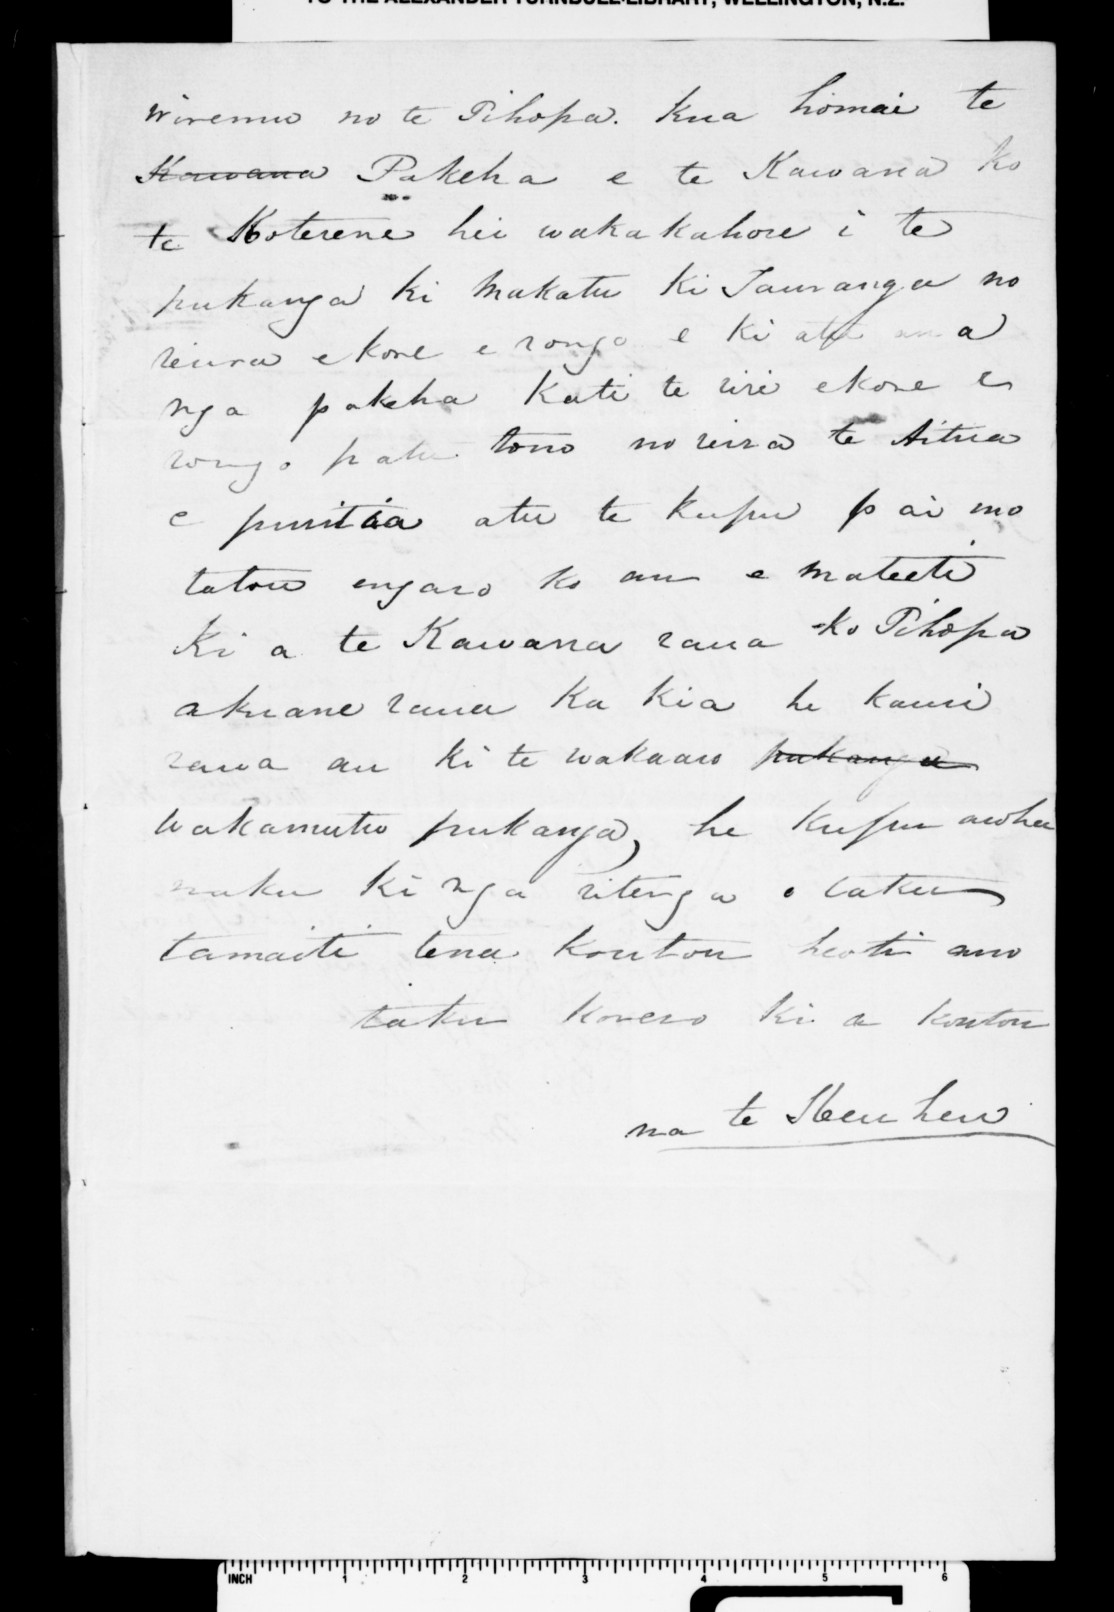 TO THE ALEXANDER TURNBULL LIBRARY, WELLINGTON, N.Z.
wiremu no te Pihopa. kua homai te
Kawana Pakeha e te Kawana ko
te Koterene hei wakakahore i te
pukanga ki Maketu ki Tauranga no
reira ekore e rongo e ki atu ana
nga pakeha Kati te riri ekore e
rongo patu tono no reira te Aitua
e puritia atu te kupu pai mo
tatou engaro ko au e mateeti
Ki a te Kawana raua ko Pihopa
akuane raua ka kia he kauri
rawa au ki te wakaaro pukanga
wakamutu pukanga, he kupu aroha
naku ki nga ritenga o taku
tamaiti tena koutou heoti ano
taku korero ki a koutou
na te Heuheu
INCH 1 2 3 4 5 6